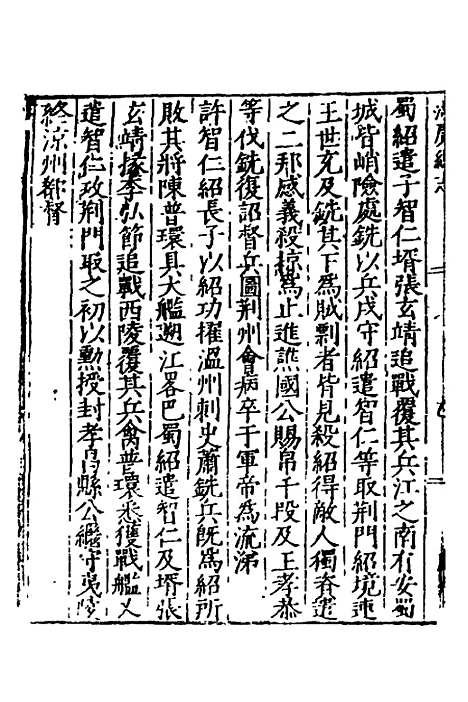 蜀紹遣子智仁壻張玄靖追戰覆其兵江之南有安蜀
城皆峭險處銑以兵戌守紹遣智仁等取荆門紹境連
王世充及銑其下為賊剽者皆見殺紹得敵人獨脊遣
之二邦感義殺掠為止進譙國公賜帛千段及王孝恭
等伐銑復詔督兵圖荆州會病卒于軍帝為流涕
許智仁紹長子以紹功擢溫州刺史蕭銑兵既為紹所
敗其將陳普環具大艦遡江畧巴蜀紹遣智仁及壻張
玄靖掾李弘節追戰西陵覆其兵禽普環悉獲戰艦又
遣智仁攻荆門取之初以勲授封孝昌縣公繼守夷陵
終涼州都督